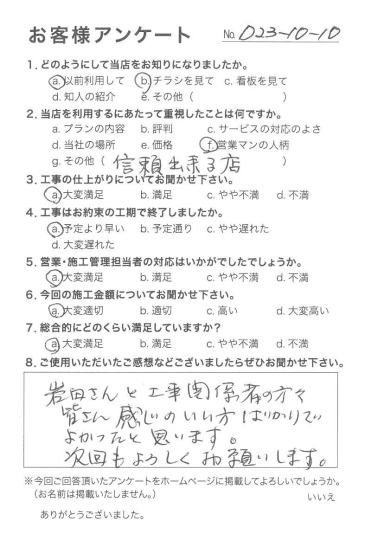 お客様アンケート No. 023-10-10
1. どのようにして当店をお知りになりましたか。
a. 以前利用して b. チラシを見て c. 看板を見て
d. 知人の紹介 e. その他（ ）
2. 当店を利用するにあたって重視したことは何ですか。
a. プランの内容 b. 評判 c. サービスの対応のよさ
d. 当社の場所 e. 価格 f. 営業マンの人柄
g. その他（ 信頼出来る店
3. 工事の仕上がりについてお聞かせ下さい。
a. 大変満足 b. 満足 c. やや不満 d. 不満
4. 工事はお約束の工期で終了しましたか。
a. 予定より早い b. 予定通り c. やや遅れた
d. 大変遅れた
5. 営業・施工管理担当者の対応はいかがでしたでしょうか。
a. 大変満足 b. 満足 c. やや不満 d. 不満
6. 今回の施工金額についてお聞かせ下さい。
a. 大変適切 b. 適切 c. 高い d. 大変高い
7. 総合的にどのくらい満足していますか？
a. 大変満足 b. 満足 c. やや不満 d. 不満
8. ご使用いただいたご感想などございましたらぜひお聞かせ下さい。
岩田さんと工事関係者の方々
皆さん感じのいい方ばかりで
よかったと思います。
次回もよろしくお願いします。
※今回ご回答頂いたアンケートをホームページに掲載してよろしいでしょうか。
（お名前は掲載いたしません。） いいえ
ありがとうございました。